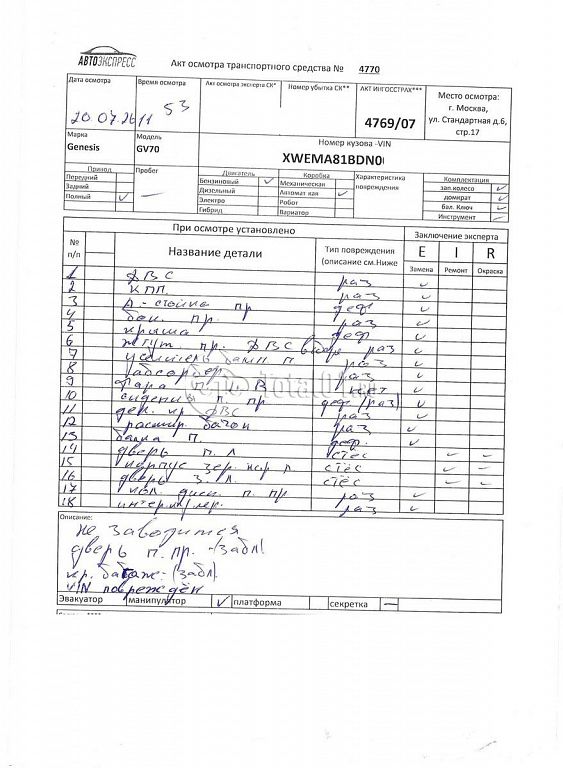 АВТОЭКСПРЕСС
Акт осмотра транспортного средства № 4770
Дата осмотра
Время осмотра
Акт осмотра эксперта СК*
Номер убытка СК**
АКТ ИНГОССТРАХ***
Место осмотра:
г. Москва,
ул. Стандартная д.6,
стр.17
11 53
4769/07
Марка
Модель
Номер кузова -VIN
Genesis
GV70
XWEMA81BDN0
Привод
Пробег
Двигатель
Коробка
Характеристика повреждения
Комплектация
Передний
Бензиновый ✓
Механическая
зап.колесо ✓
Задний
Дизельный
Автомат кая ✓
домкрат ✓
Полный ✓
Электро
Робот
бал. Ключ ✓
Гибрид
Вариатор
Инструмент —
При осмотре установлено
Заключение эксперта
№ п/п
Название детали
Тип повреждения (описание см.Ниже
E I R
Замена Ремонт Окраска
1 ДВС раз ✓
2 КПП раз ✓
3 А-стойка пр деф ✓
4 бок. пр. раз ✓
5 крыша деф ✓
6 жгут. пр. ДВС раз ✓
7 усилитель п раз ✓
8 абсорбер раз ✓
9 фара п. нет ✓
10 сиденье п. пр деф (раз) ✓
11 дек. кр ДВС раз ✓
12 расшир. бачок раз ✓
13 балка п. деф. ✓
14 дверь п. л стёс — —
15 корпус зер. нар л стёс — —
16 дверь з. л стёс — —
17 диск п. пр раз ✓
18 раз ✓
Описание:
не заводится
дверь п. пр. - забл.
кр. багаж - забл.
VIN повреждён
Эвакуатор манипулятор ✓ платформа секретка —